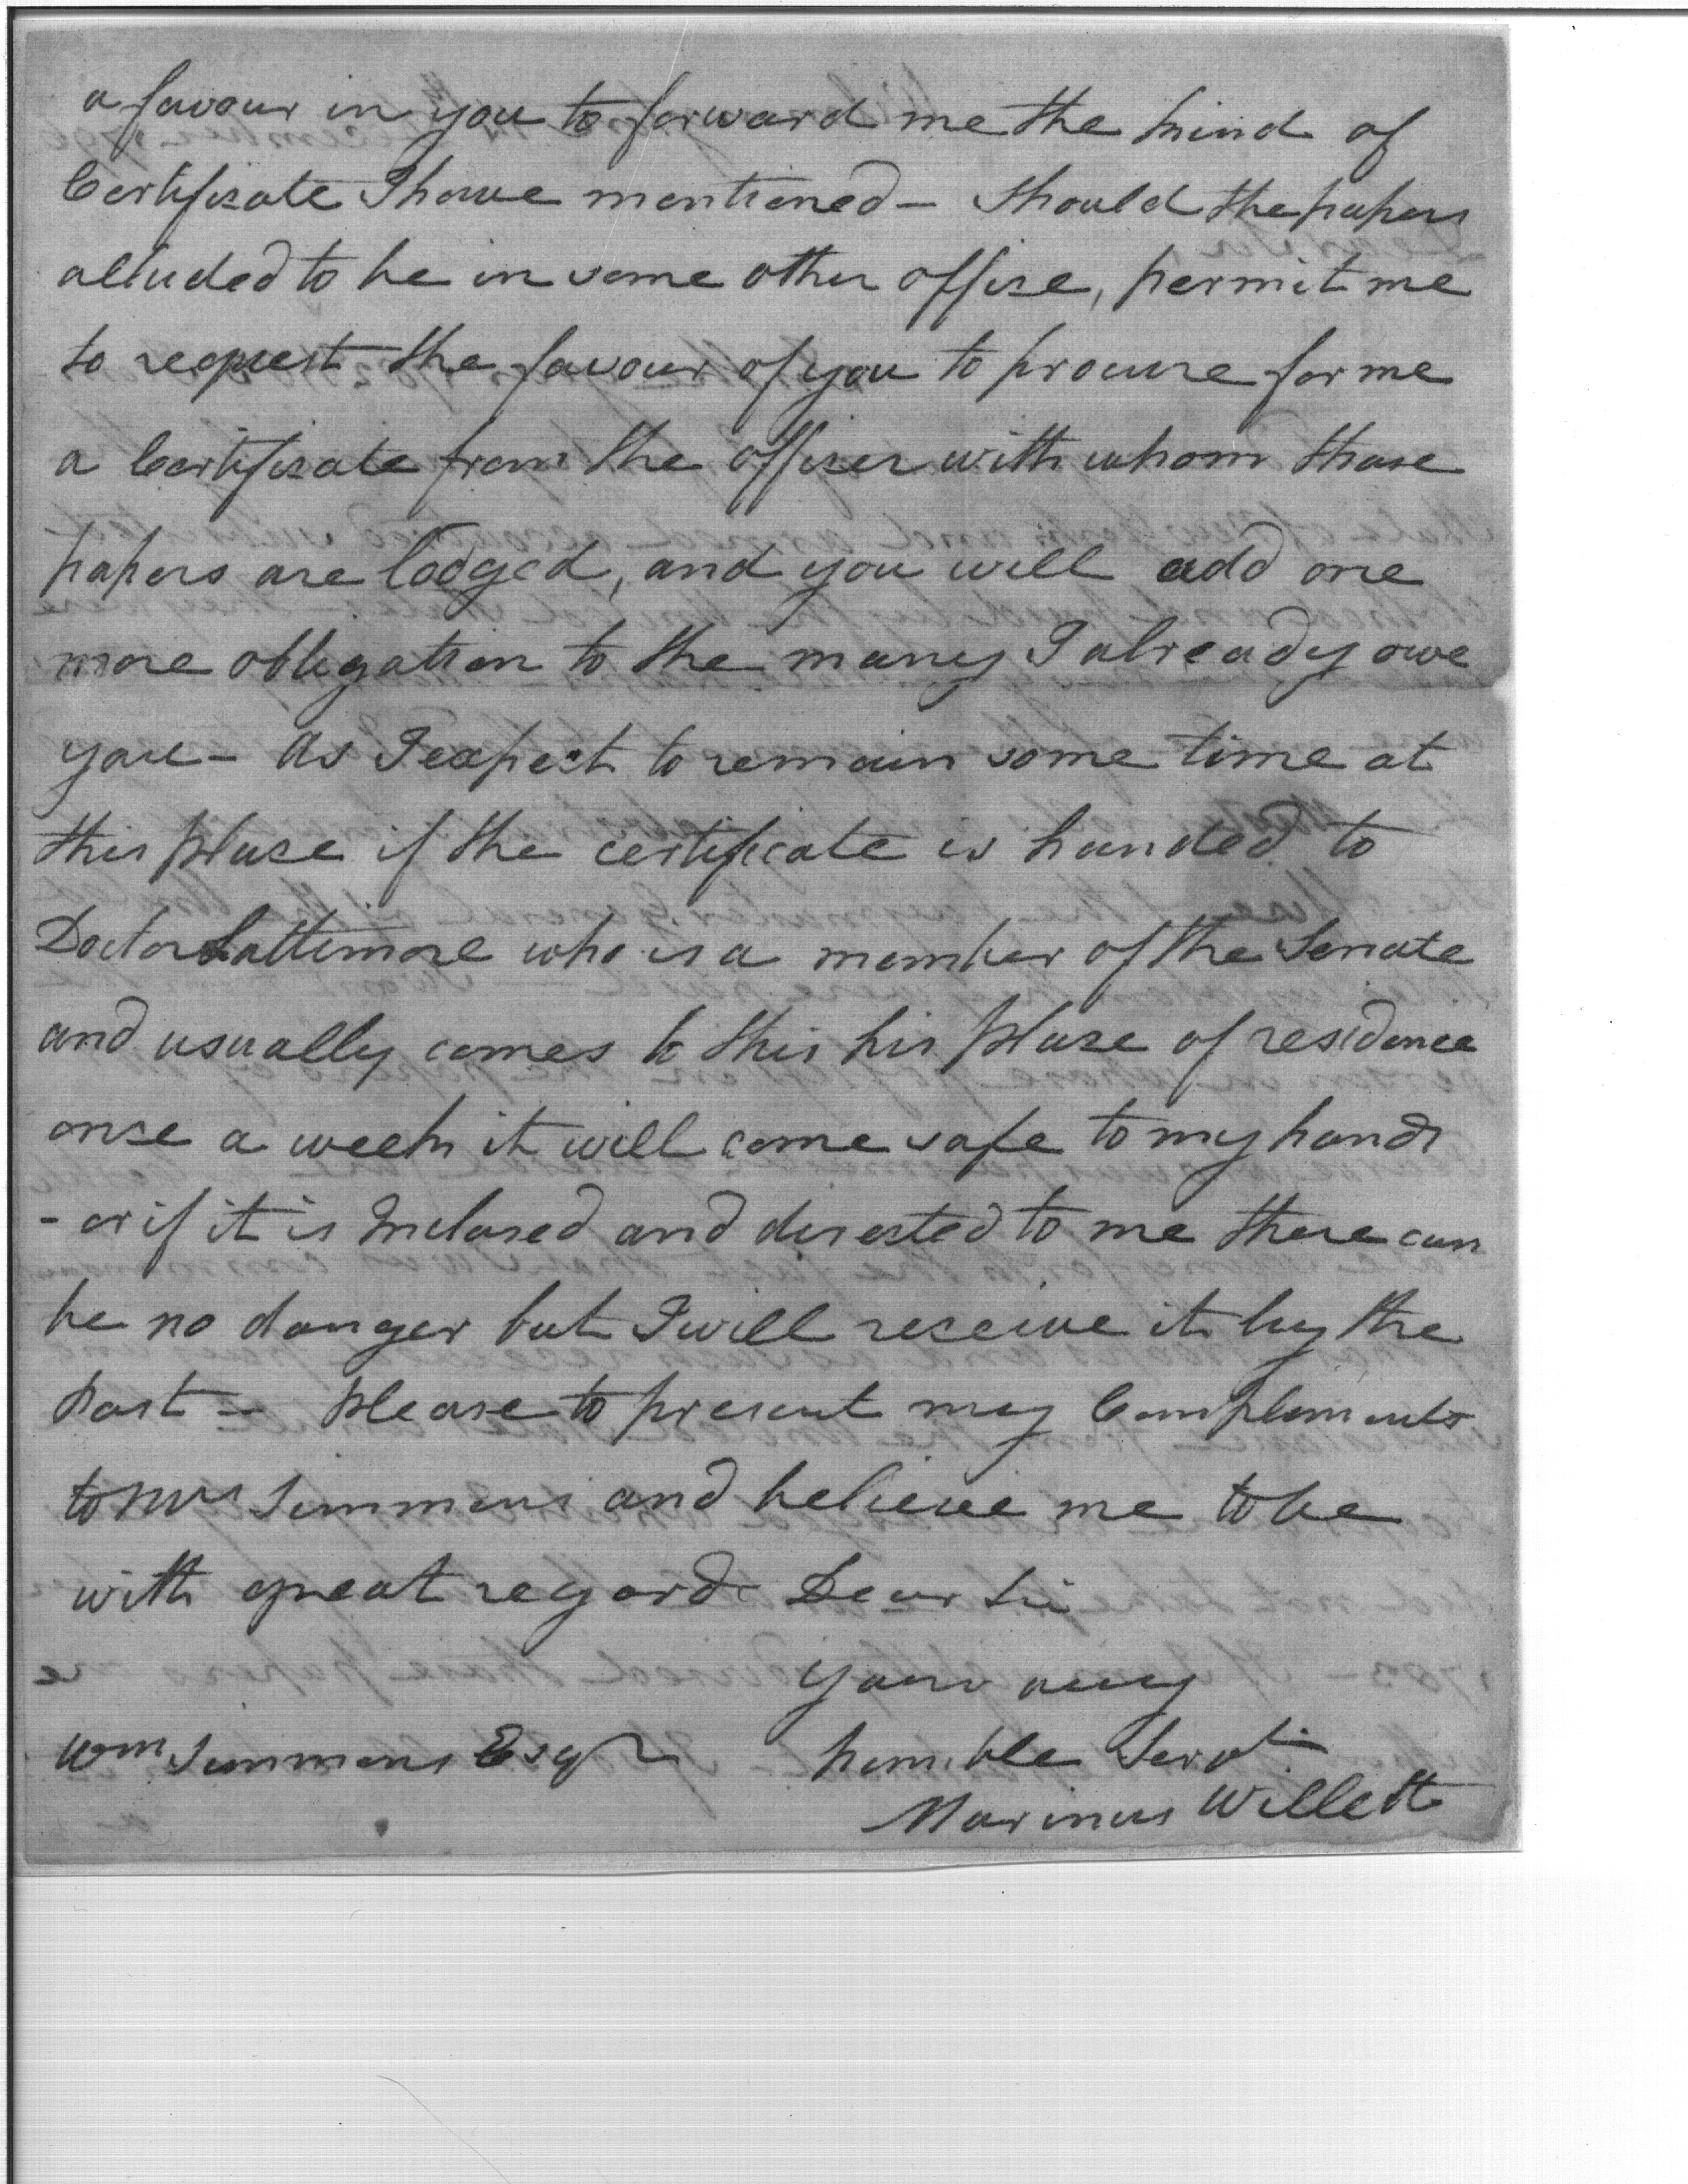 a favour in you to forward me the kind of
Certificate I have mentioned – Should the papers
alluded to be in some other office, permit me
to request the favour of you to procure for me
a Certificate from the officer with whom those
papers are lodged, and you will add one
more obligation to the many I already owe
you – As I expect to remain some time at
this place if the certificate is handed to
Doctor Lattimore who is a member of the Senate
and usually comes to this his place of residence
once a week it will come safe to my hands
– or if it is Inclosed and directed to me there can
be no danger but I will receive it by the
post – please to present my Compliments
to Mrs Simmons and believe me to be
with great regard Dear Sir
your very
Wm Simmons Esqr humble Servt
Marinus Willett